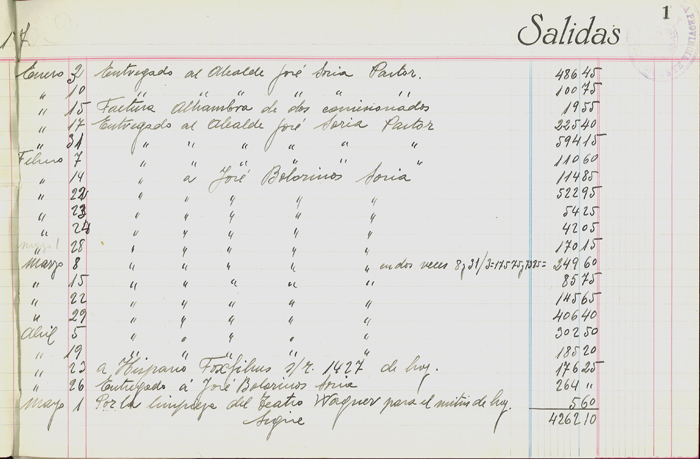 1
Salidas
Enero 2 Entregado al Alcalde José Soria Pastor. 486 45
" 10 " " " " " " 100 75
" 15 Factura Alhambra de dos comisionados 19 55
" 17 Entregado al Alcalde José Soria Pastor 225 40
" 31 " " " " " " 594 15
Febrero 7 " " " " " " 110 60
" 14 " a José Bolarinos Soria 114 85
" 22 " " " " " 522 95
" 23 " " " " " 54 25
" 24 " " " " " 42 05
" 28 " " " " " 170 15
Marzo 8 " " " " " en dos veces 8 y 31/3= 175 75 y 73 85= 249 60
" 15 " " " " " 85 75
" 22 " " " " " 145 65
" 29 " " " " " 406 40
Abril 5 " " " " " 302 50
" 19 " " " " " 185 20
" 23 a Hispano Foxfilms s/r. 1427 de hoy. 176 25
" 26 Entregado á José Bolarinos Soria 264 "
Mayo 1 Por la limpieza del Teatro Wagner para el mitin de hoy. 5 60
Sigue 4262 10